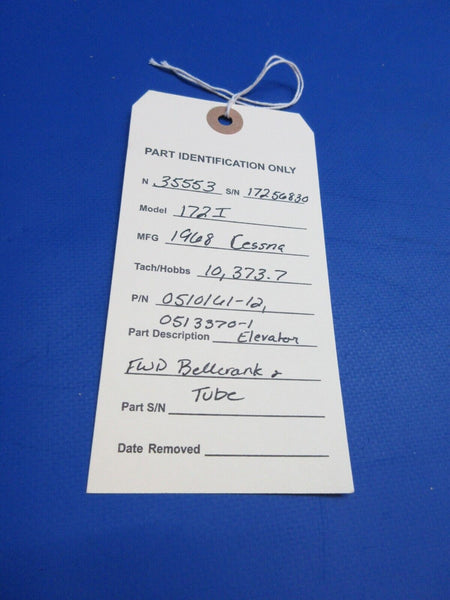 PART IDENTIFICATION ONLY
N 35553 S/N 17256830
Model 172I
MFG 1968 Cessna
Tach/Hobbs 10,373.7
P/N 0510161-12,
0513370-1
Part Description Elevator
FWD Bellcrank &
Tube
Part S/N
Date Removed